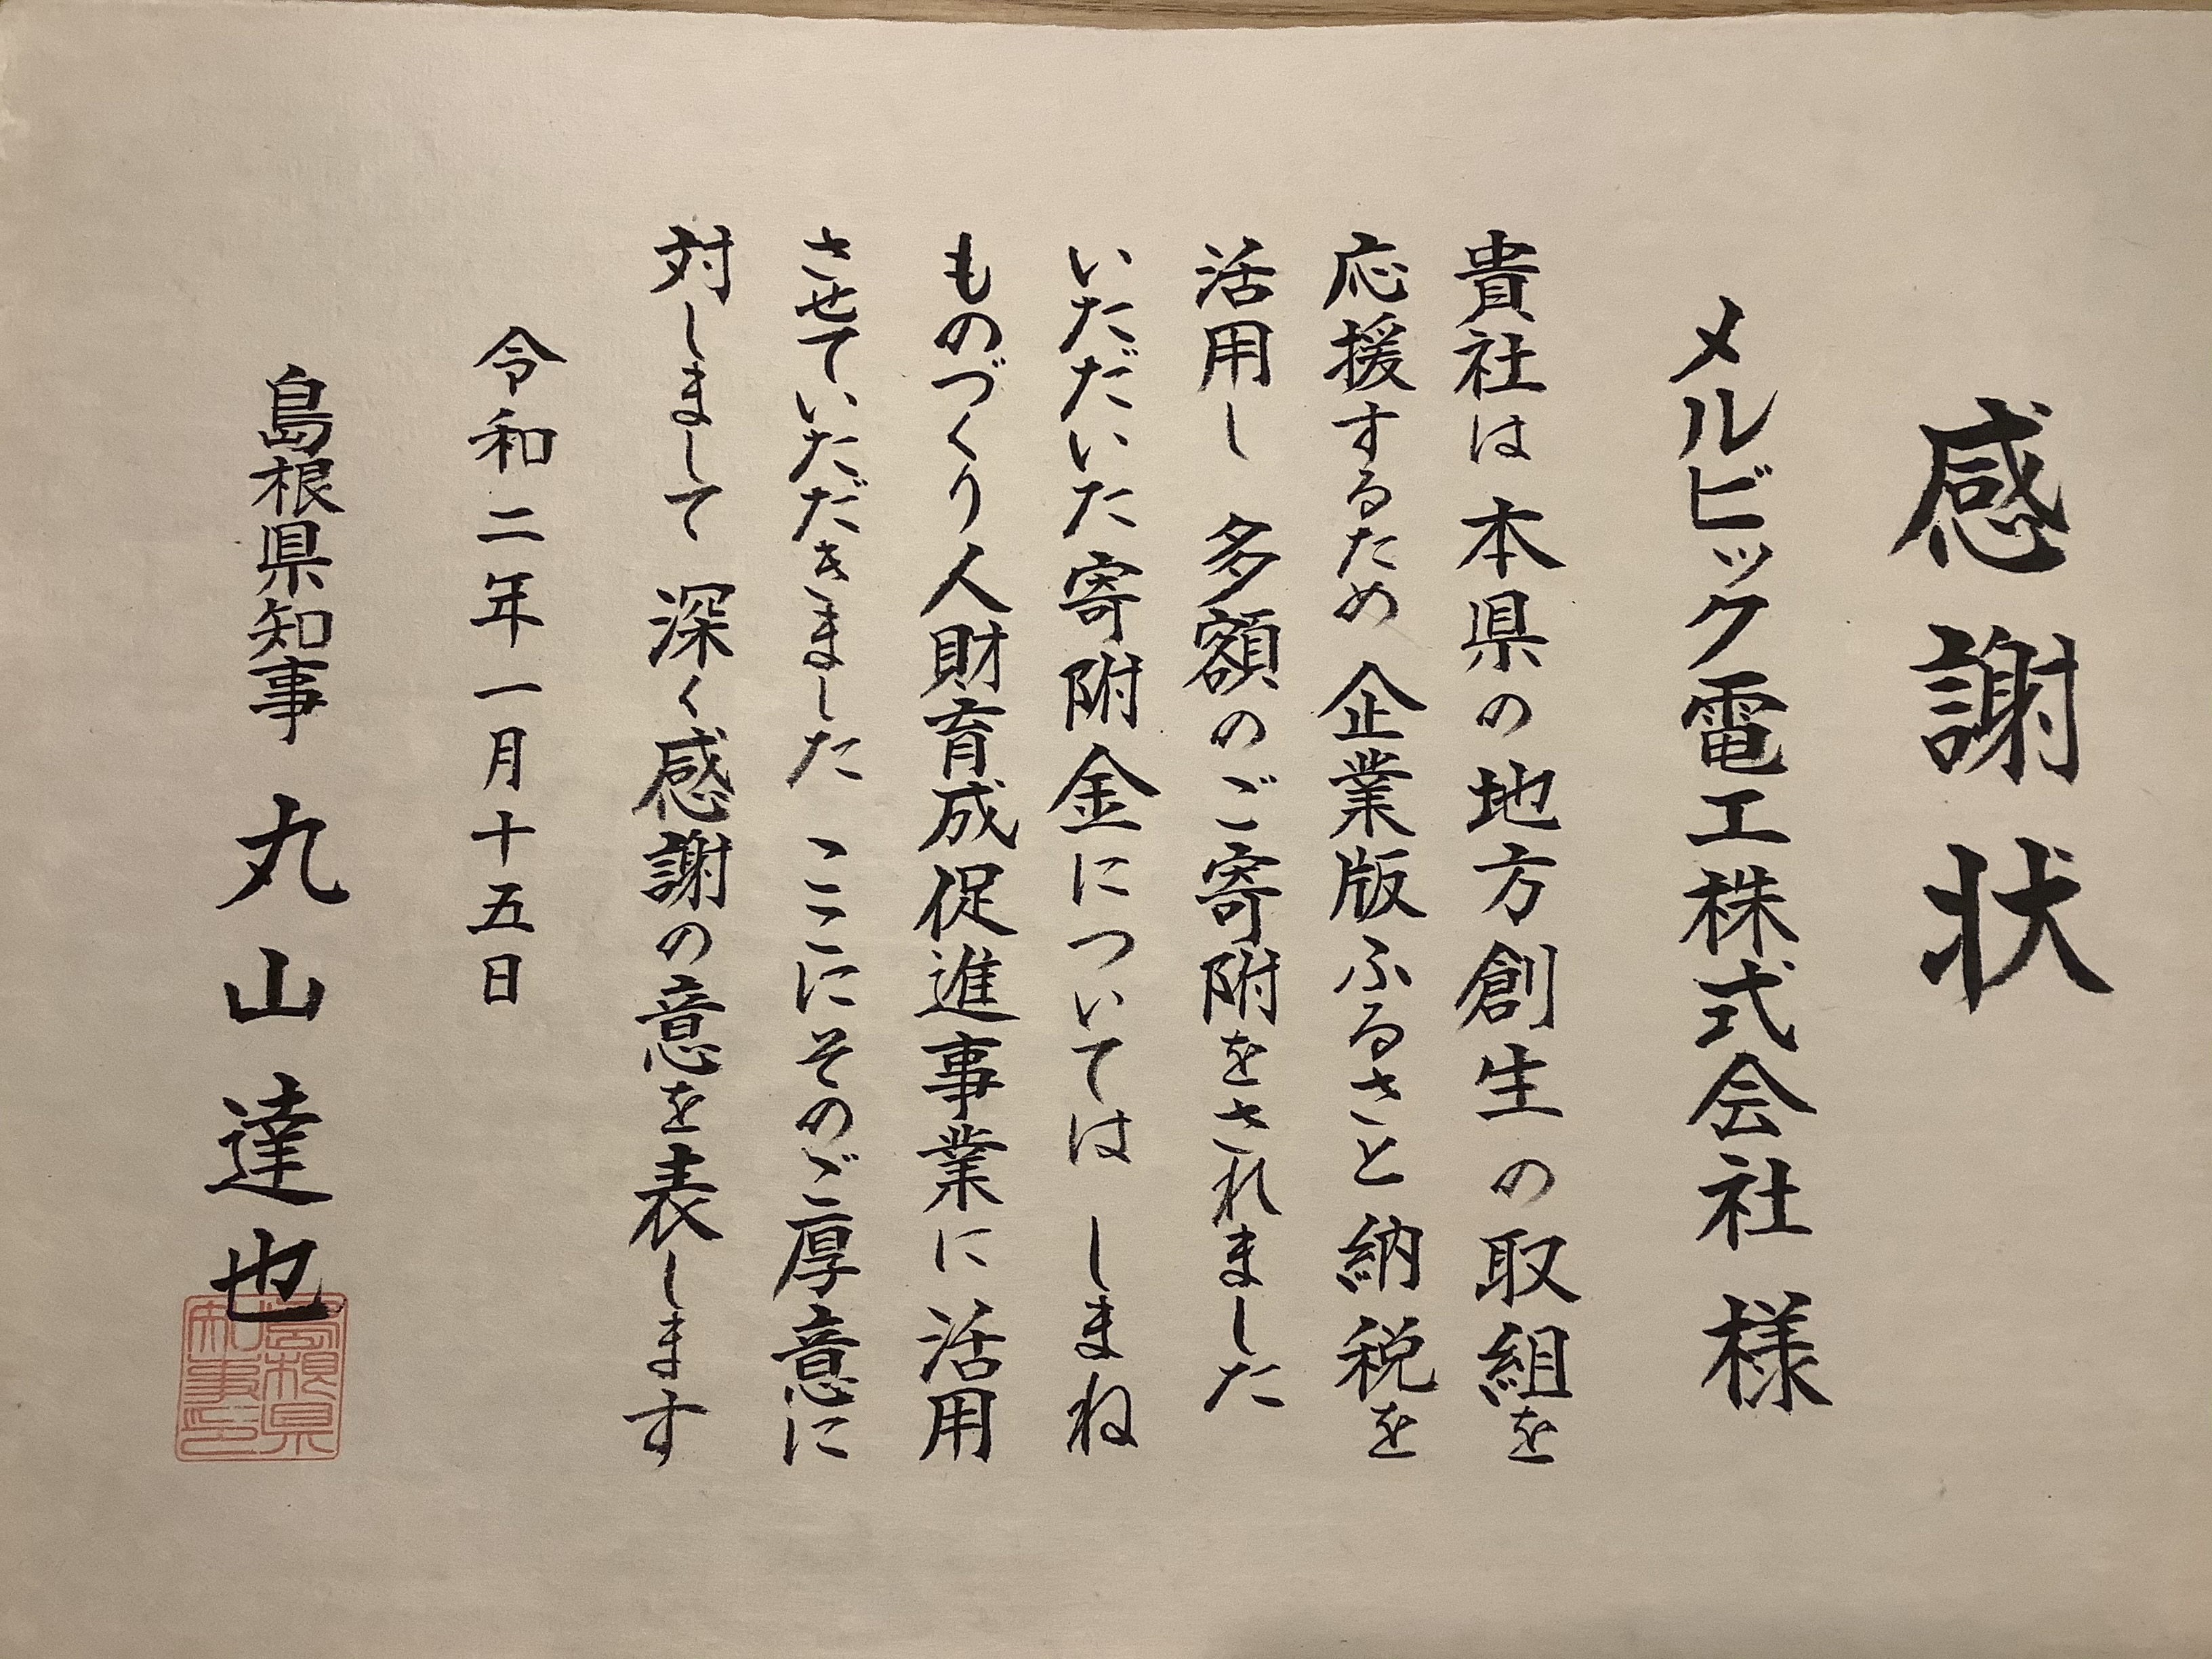 感謝状
メルビック電工株式会社 様
貴社は本県の地方創生の取組を
応援するため 企業版ふるさと納税を
活用し 多額のご寄附をされました
いただいた寄附金については しまね
ものづくり人財育成促進事業に活用
させていただきました ここにそのご厚意に
対しまして 深く感謝の意を表します
令和二年一月十五日
島根県知事 丸山達也
島根県
知事印